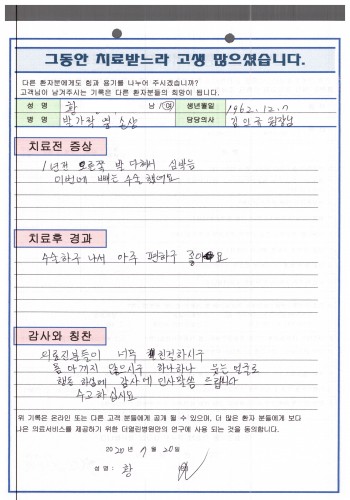 그동안 치료받느라 고생 많으셨습니다.
다른 환자분에게도 힘과 용기를 나누어 주시겠습니까?
고객님이 남겨주시는 기록은 다른 환자분들의 희망이 됩니다.
성 명 황 남 / 여 생년월일 1962.12.
병 명 손상 담당의사 원장님
치료전 증상
1년전 오른쪽
이번에 수술 했어요
치료후 경과
수술하구 나서 아주 편하구 좋아요
감사와 칭찬
의료진분들이 너무 친절하시구
몸 아끼지 않으시구 하나하나 웃는 얼굴로
행동 하심에 감사에 인사말씀 드립니다
수고 하십시요
위 기록은 온라인 또는 다른 고객 분들에게 공개 될 수 있으며, 더 많은 환자 분들에게 보다
나은 의료서비스를 제공하기 위한 더열린병원만의 연구에 사용 되는 것을 동의합니다.
2020년 7월 20일
성 명 : 황